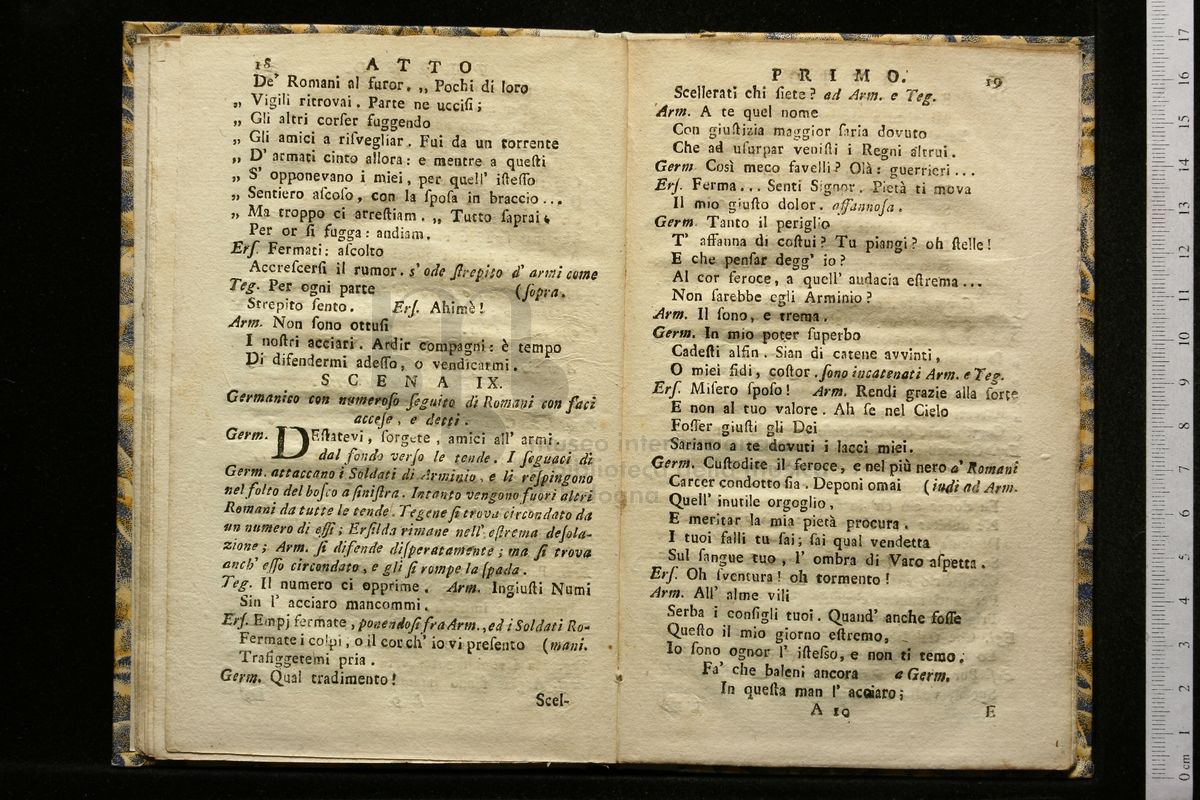 18 ATTO
De' Romani al furor. „ Pochi di loro
„ Vigili ritrovai. Parte ne uccisi;
„ Gli altri corser fuggendo
„ Gli amici a risvegliar. Fui da un torrente
„ D' armati cinto allora: e mentre a questi
„ S' opponevano i miei, per quell' istesso
„ Sentiero ascoso, con la sposa in braccio...
„ Ma troppo ci arrestiam. „ Tutto saprai.
Per or si fugga: andiam.
Ers. Fermati: ascolto
Accrescersi il rumor. s' ode strepito d' armi come
Teg. Per ogni parte (sopra.
Strepito sento. Ers. Ahimè!
Arm. Non sono ottusi
I nostri acciari. Ardir compagni: è tempo
Di difendermi adesso, o vendicarmi.
SCENA IX.
Germanico con numeroso seguito di Romani con faci
accese, e detti.
Germ. DEstatevi, sorgete, amici all' armi.
dal fondo verso le tende. I seguaci di
Germ. attaccano i Soldati di Arminio, e li respingono
nel folto del bosco a sinistra. Intanto vengono fuori altri
Romani da tutte le tende. Tegene si trova circondato da
un numero di essi; Ersilda rimane nell' estrema desola-
zione; Arm. si difende disperatamente; ma si trova
anch' esso circondato, e gli si rompe la spada.
Teg. Il numero ci opprime. Arm. Ingiusti Numi
Sin l' acciaro mancommi.
Ers. Empj fermate, ponendosi fra Arm., ed i Soldati Ro-
Fermate i colpi, o il cor ch' io vi presento (mani.
Trafiggetemi pria.
Germ. Qual tradimento!
Scel-
PRIMO. 19
Scellerati chi siete? ad Arm. e Teg.
Arm. A te quel nome
Con giustizia maggior saria dovuto
Che ad usurpar venisti i Regni altrui.
Germ. Così meco favelli? Olà: guerrieri...
Ers. Ferma... Senti Signor. Pietà ti mova
Il mio giusto dolor. affannosa.
Germ. Tanto il periglio
T' affanna di costui? Tu piangi? oh stelle!
E che pensar degg' io?
Al cor feroce, a quell' audacia estrema...
Non sarebbe egli Arminio?
Arm. Il sono, e trema.
Germ. In mio poter superbo
Cadesti alfin. Sian di catene avvinti,
O miei fidi, costor. sono incatenati Arm. e Teg.
Ers. Misero sposo! Arm. Rendi grazie alla sorte
E non al tuo valore. Ah se nel Cielo
Fosser giusti gli Dei
Sariano a te dovuti i lacci miei.
Germ. Custodite il feroce, e nel più nero a' Romani
Carcer condotto sia. Deponi omai (indi ad Arm.
Quell' inutile orgoglio,
E meritar la mia pietà procura.
I tuoi falli tu sai; sai qual vendetta
Sul sangue tuo, l' ombra di Varo aspetta.
Ers. Oh sventura! oh tormento!
Arm. All' alme vili
Serba i consigli tuoi. Quand' anche fosse
Questo il mio giorno estremo,
Io sono ognor l' istesso, e non ti temo.
Fa' che baleni ancora a Germ.
In questa man l' acciaro;
A 10 E